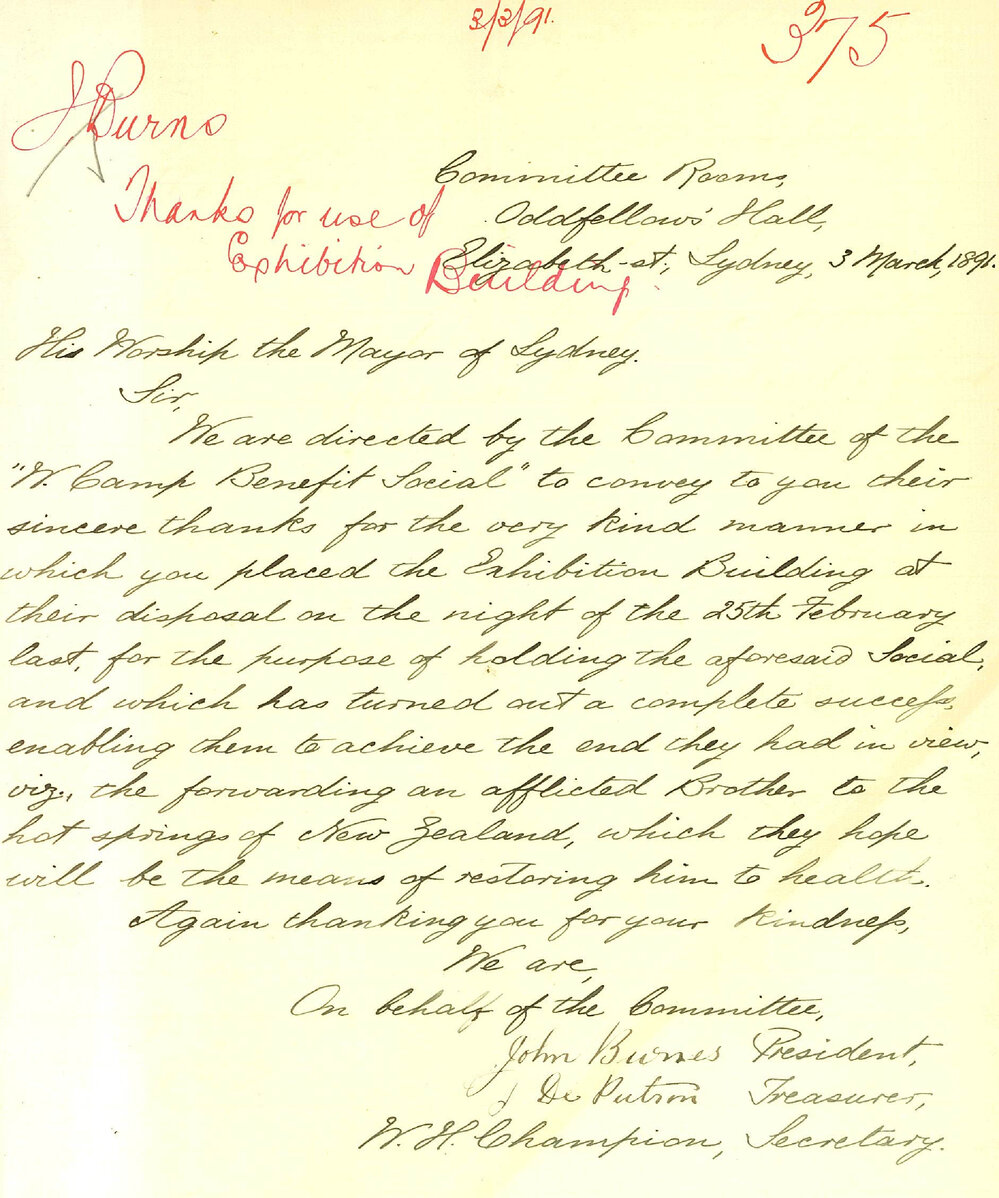 3/3/91.
375
J Burns
Thanks for use of
Exhibition Building
Committee Rooms,
Oddfellows' Hall,
Elizabeth-st., Sydney, 3 March, 1891.
His Worship the Mayor of Sydney.
Sir,
We are directed by the Committee of the
"W. Camp Benefit Social" to convey to you their
sincere thanks for the very kind manner in
which you placed the Exhibition Building at
their disposal on the night of the 25th February
last, for the purpose of holding the aforesaid Social,
and which has turned out a complete success,
enabling them to achieve the end they had in view,
viz., the forwarding an afflicted Brother to the
hot springs of New Zealand, which they hope
will be the means of restoring him to health.
Again thanking you for your kindness,
We are,
On behalf of the Committee,
John Burnes President,
J De Putron Treasurer,
W. H. Champion, Secretary.